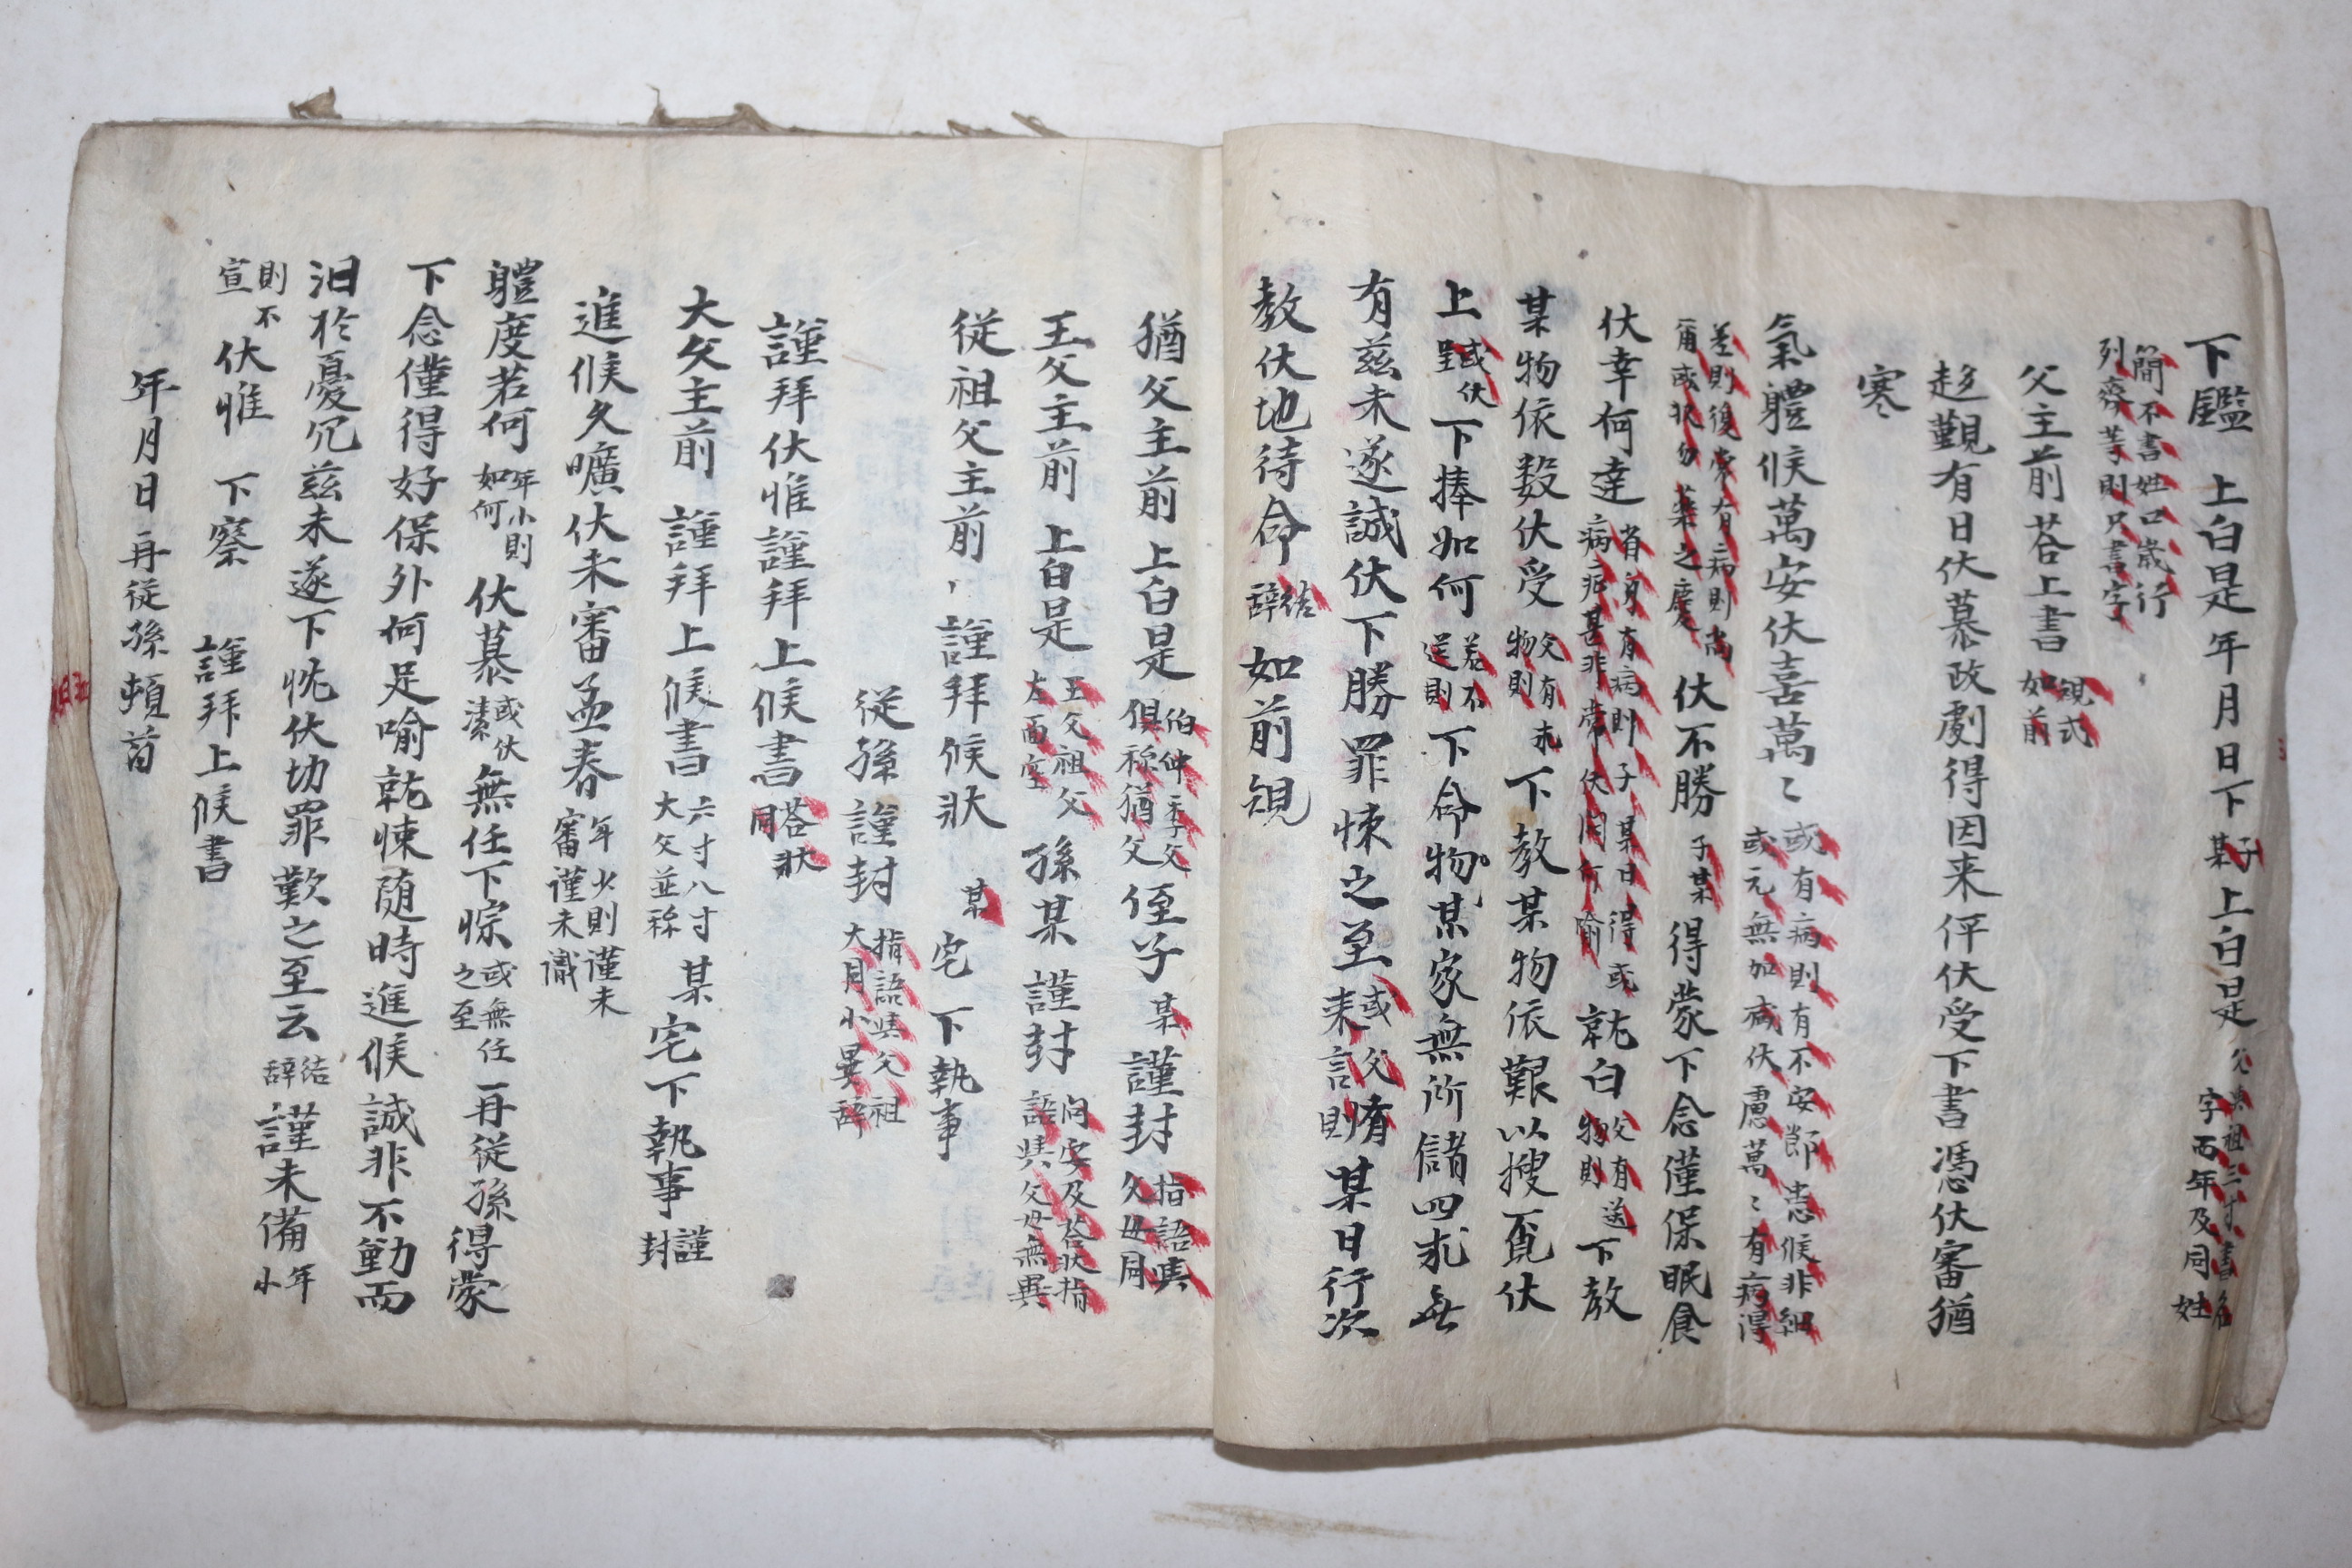 下鑑 上白是 年 月 日 下 子某 上白是 父與祖三寸書名字而年及同姓
簡不書姓口歲行列齊等則只書字
父主前荅上書 規式如前
趍觀有日伏慕政劇得因来伻伏受下書憑伏審猶
寒
氣軆候萬安伏喜萬〻 或有病則有不安節患候非細或元無加减伏慮萬〻有病得
差則復常有病則尚
伏不勝 子某 得蒙下念僅保眠食
伏幸何達 省身有病則子某日得或病 就白 父有送物則 下教
某物依数伏受 父有未物則 下教某物依艱以搜覔伏
上 或伏呈 下捧如何 若不送則 下命物某家無所儲四求無
有兹未遂誠伏下勝罪悚之至 或父有来言則 某日行次
教伏地待命 結辞 如前規
猶父主前 上白是 伯仲季父俱称猶父 侄子 某 謹封 指語與父母同
王父主前 上白是 王父祖父左面空 孫某 謹封 问安及荅狀指語與父母無異
従祖父主前 謹拜候狀 某宅 下執事
従孫謹封 指語與父祖大同小異辞
謹拜伏惟謹拜上候書 荅狀同
大父主前 謹拜上候書 六寸八寸大父並称 某宅下執事 謹封
進候久曠伏未審孟春 年少則謹未審謹未識
軆度若何 年小則如何 伏慕 或伏溸 無任下悰 或無任之至 再従孫 得蒙
下念僅得好保外何足喻就悚随時進候誠非不勤而
汨於憂冗兹未遂下忱伏切罪歎之至云 結辞 謹未備 年小
則不宣 伏惟 下察 謹拜上候書
年 月 日 再従孫 頓首